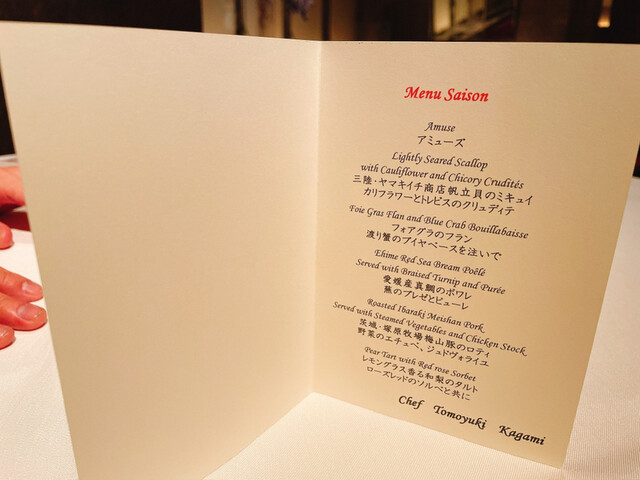 Menu Saison
Amuse
アミューズ
Lightly Seared Scallop
with Cauliflower and Chicory Crudités
三陸・ヤマキイチ商店帆立貝のミキュイ
カリフラワーとトレビスのクリュディテ
Foie Gras Flan and Blue Crab Bouillabaisse
フォアグラのフラン
渡り蟹のブイヤベースを注いで
Ehime Red Sea Bream Poêlé
Served with Braised Turnip and Purée
愛媛産真鯛のポワレ
蕪のブレゼとピューレ
Roasted Ibaraki Meishan Pork
Served with Steamed Vegetables and Chicken Stock
茨城・塚原牧場梅山豚のロティ
野菜のエチュベ、ジュドヴォライユ
Pear Tart with Red rose Sorbet
レモングラス香る和梨のタルト
ローズレッドのソルベと共に
Chef Tomoyuki Kagami